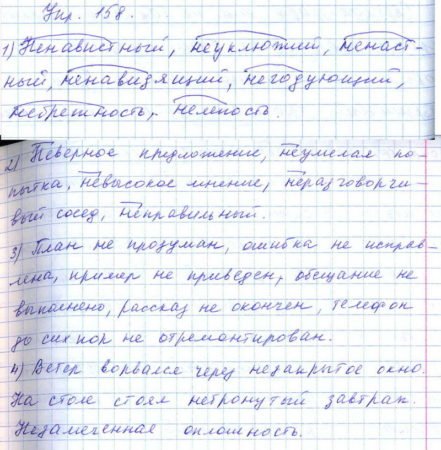 Упр. 158.
1) Ненавистный, неуклюжий, ненаст-
ный, ненавидящий, негодующий,
небрежность, нелепость.
2) Неверное предложение, неумелая по-
пытка, невысокое мнение, неразговорчи-
вый сосед, неправильный.
3) План не продуман, ошибка не исправ-
лена, пример не приведен, обещание не
выполнено, рассказ не окончен, телефон
до сих пор не отремонтирован.
4) Ветер ворвался через незакрытое окно.
На столе стоял нетронутый завтрак.
Незамеченная оплошность.